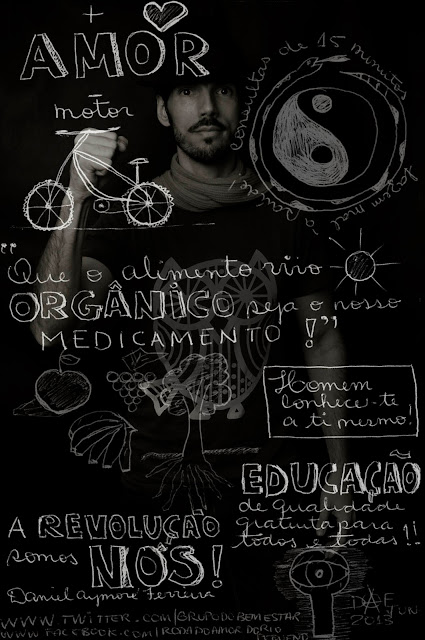 +
AMOR
- motor
Consultas de 15 minutos
fazem mal a saúde!
"Que o alimento vivo
ORGÂNICO seja o nosso
MEDICAMENTO!"
Homem
conhece-te
a ti mesmo!
EDUCAÇÃO
de qualidade
gratuita para
todos e todas!!
A REVOLUÇÃO
somos NÓS!
Daniel Aymoré Ferreira
DAF
JUN
2013
WWW.TWITTER.COM/GRUPODOBEMESTAR
WWW.FACEBOOK.COM/RODADOAMORDORIO